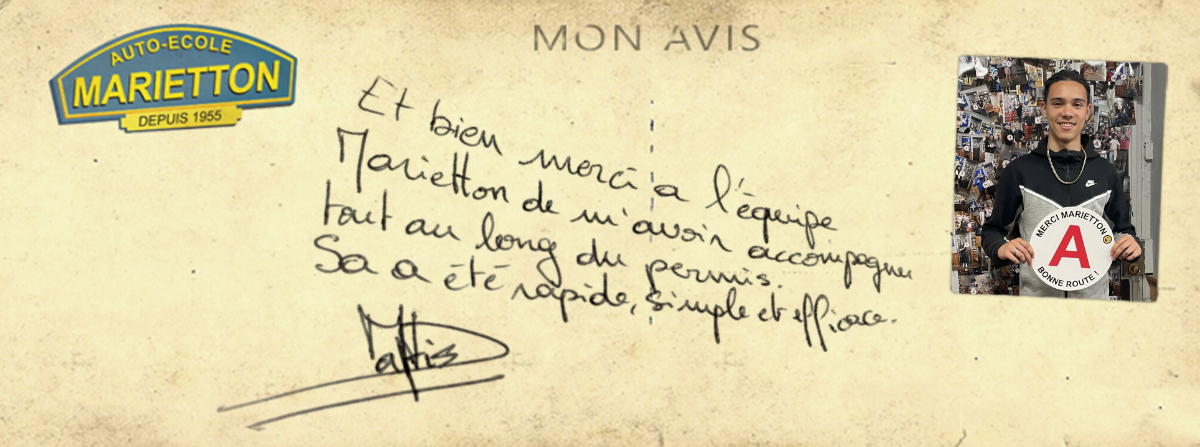 AUTO-ECOLE
MARIETTON
DEPUIS 1955
MON AVIS
Et bien merci a l'équipe
Marietton de m'avoir accompagner
tout au long du permis.
Sa a été rapide, simple et efficace.
Mattis
MERCI MARIETTON
A
BONNE ROUTE !